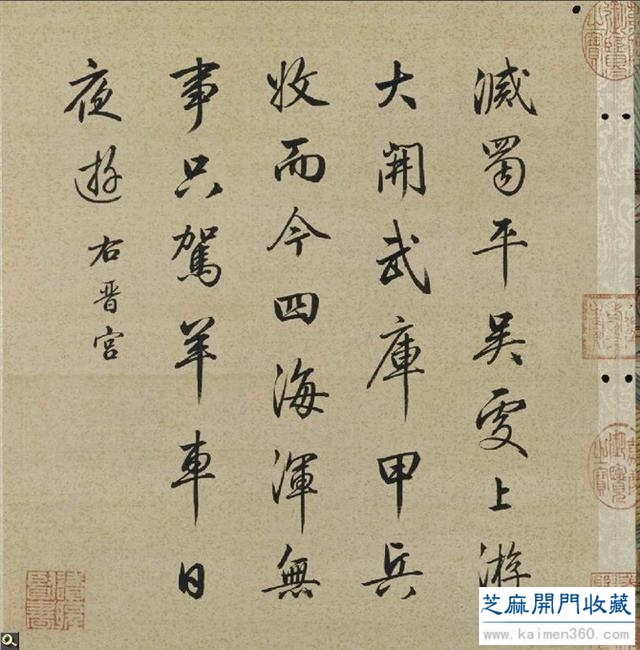 滅蜀平吳上游
大開武庫甲兵
收而今四海渾無
事只駕羊車日
夜遊 右晋宮
芝麻開門收藏
www.kaimen360.com